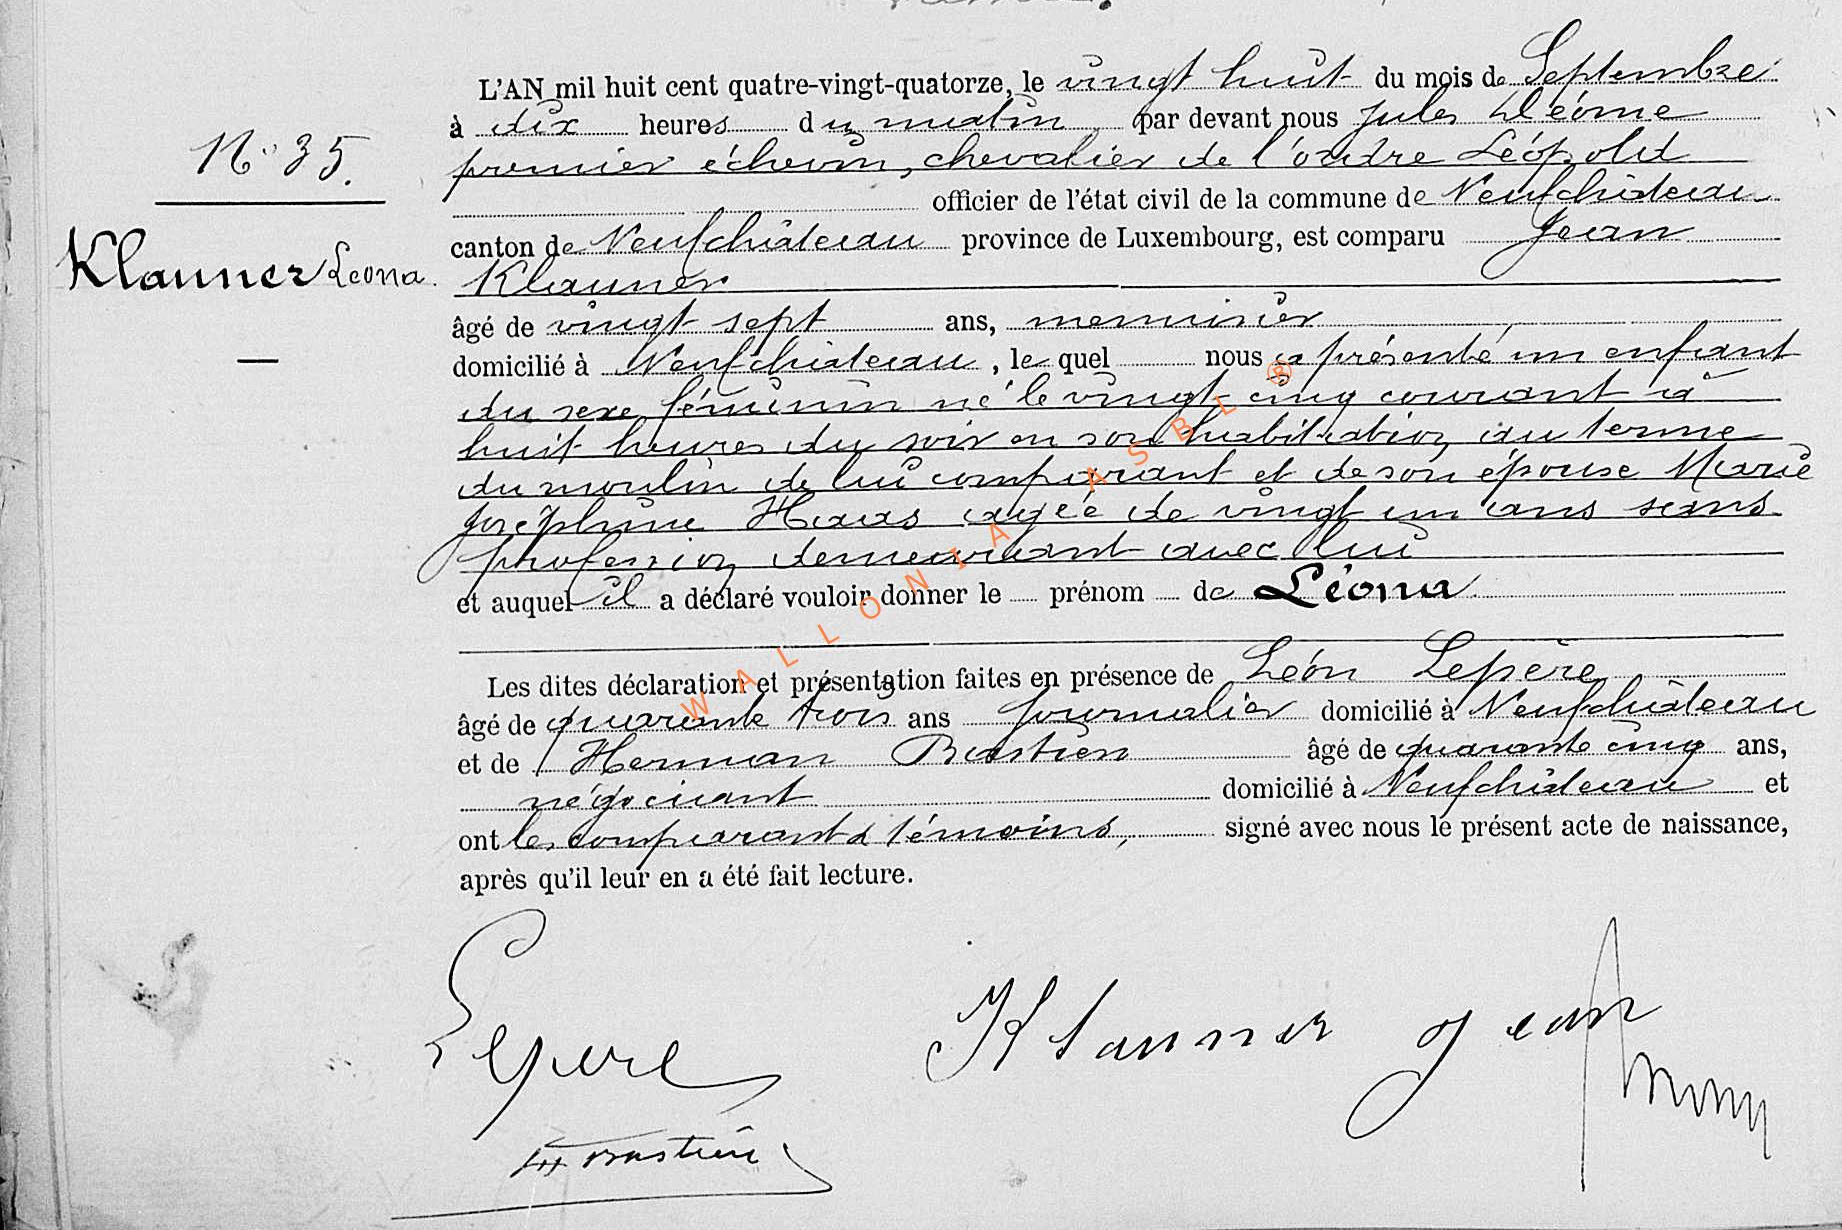 L'AN mil huit cent quatre-vingt-quatorze, le vingt huit du mois de Septembre
à dix heures du matin par devant nous Jules
N° 35.
premier échevin, chevalier de l'ordre Léopold
officier de l'état civil de la commune de Neufchâteau
canton de Neufchâteau province de Luxembourg, est comparu Jean
Klauner Leona.
Klauner
âgé de vingt sept ans, menuisier
domicilié à Neufchâteau, le quel nous a présenté un enfant
du sexe féminin né le vingt cinq courant à
huit heures du soir en son habitation au terme
du moulin de lui comparant et de son épouse Marie
Joséphine Haas agée de vingt un ans sans
profession demeurant avec lui
et auquel il a déclaré vouloir donner le prénom de Léona.
Les dites déclaration et présentation faites en présence de Léon Lepère
âgé de quarante trois ans journalier domicilié à Neufchâteau
et de Herman Bastien âgé de quarante cinq ans,
négociant domicilié à Neufchâteau et
ont les comparant & témoins, signé avec nous le présent acte de naissance,
après qu'il leur en a été fait lecture.
Lepere
Klauner Jean
H Bastien
WALLONIA ASBL ®